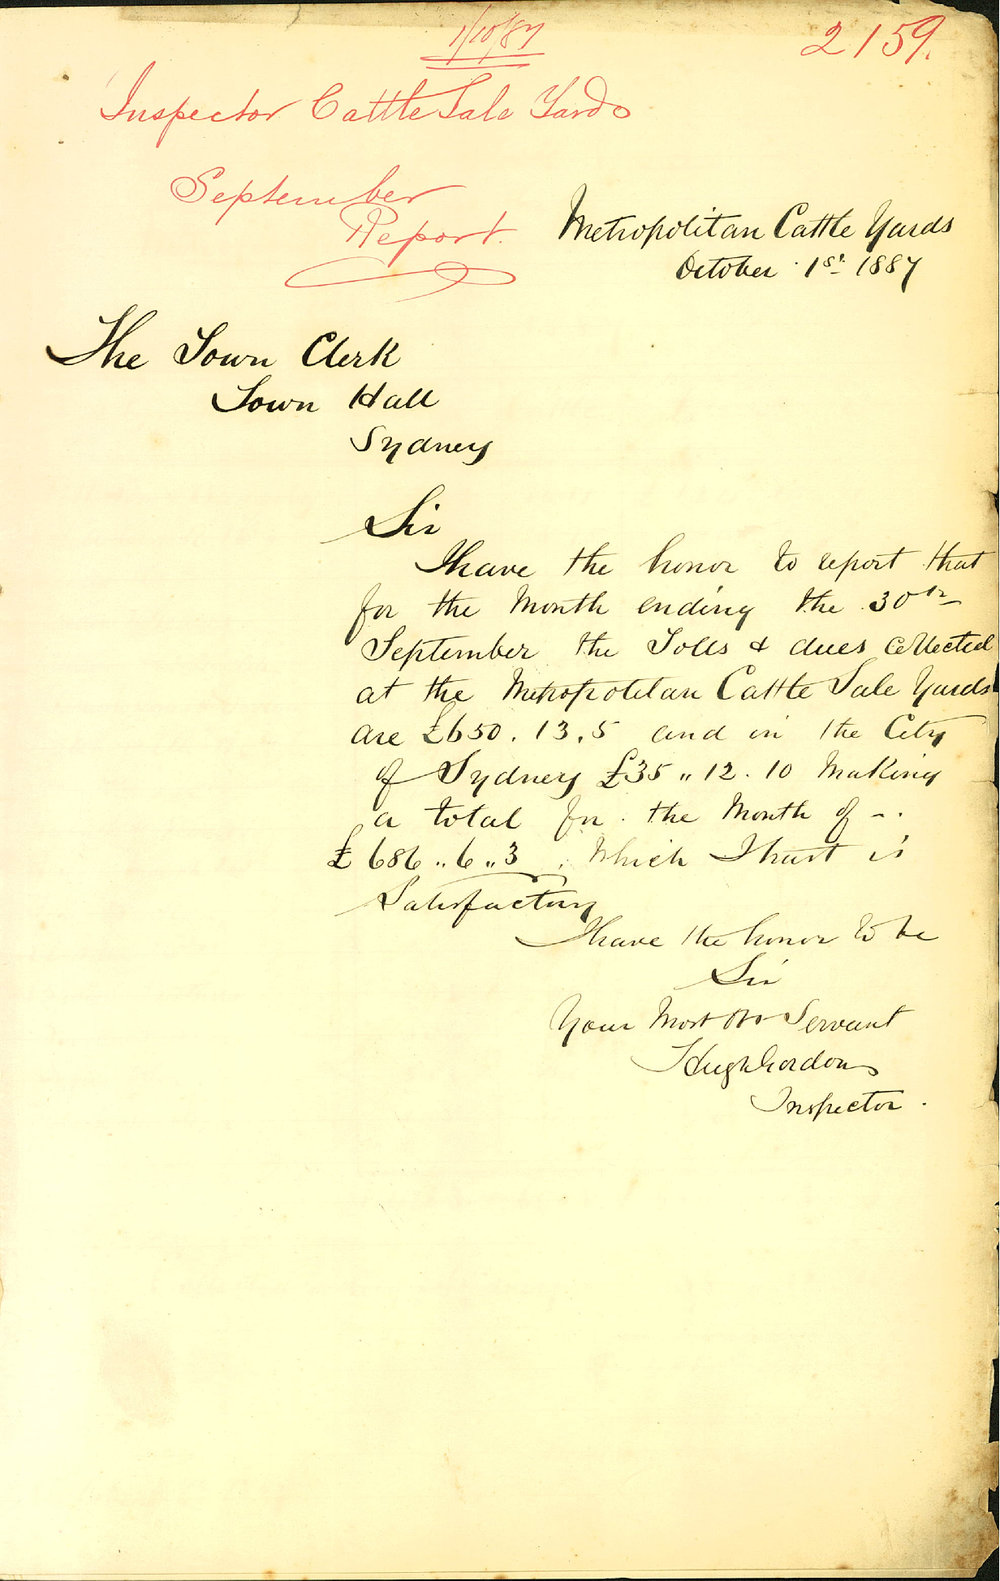 1/10/87
2159.
Inspector Cattle Sale Yards
September
Report.
Metropolitan Cattle Yards
October 1st 1887
The Town Clerk
Town Hall
Sydney
Sir
I have the honor to report that
for the Month ending the 30th
September the Tolls & dues collected
at the Metropolitan Cattle Sale Yards
are £650.13.5 and in the City
of Sydney £35"12.10 Making
a total for the Month of -.
£686"6"3. Which I trust is
Satisfactory
I have the honor to be
Sir
Your Most Obt Servant
Hugh Gordon
Inspector.